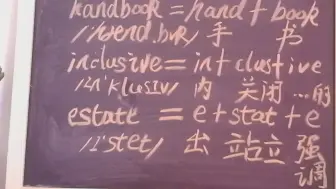 handbook = hand + book
/'hænd.bʊk/ 手 书
inclusive = in + clus + ive
/ɪn'klusɪv/ 内 关闭 ...的
estate = e + stat + e
/ɪ'stet/ 出 站立 强调